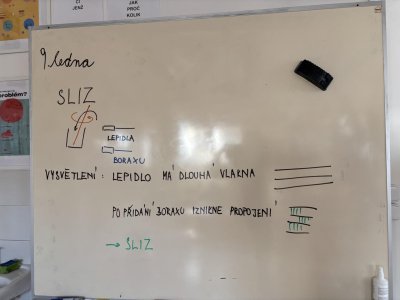 ČÍ
JENŽ
JAK
PROČ
KOLIK
9 ledna
problém?
SLIZ
LEPIDLA
BORAXU
VYSVĚTLENÍ: LEPIDLO MÁ DLOUHÁ VLÁKNA
PO PŘIDÁNÍ BORAXU VZNIKNE PROPOJENÍ
→ SLIZ